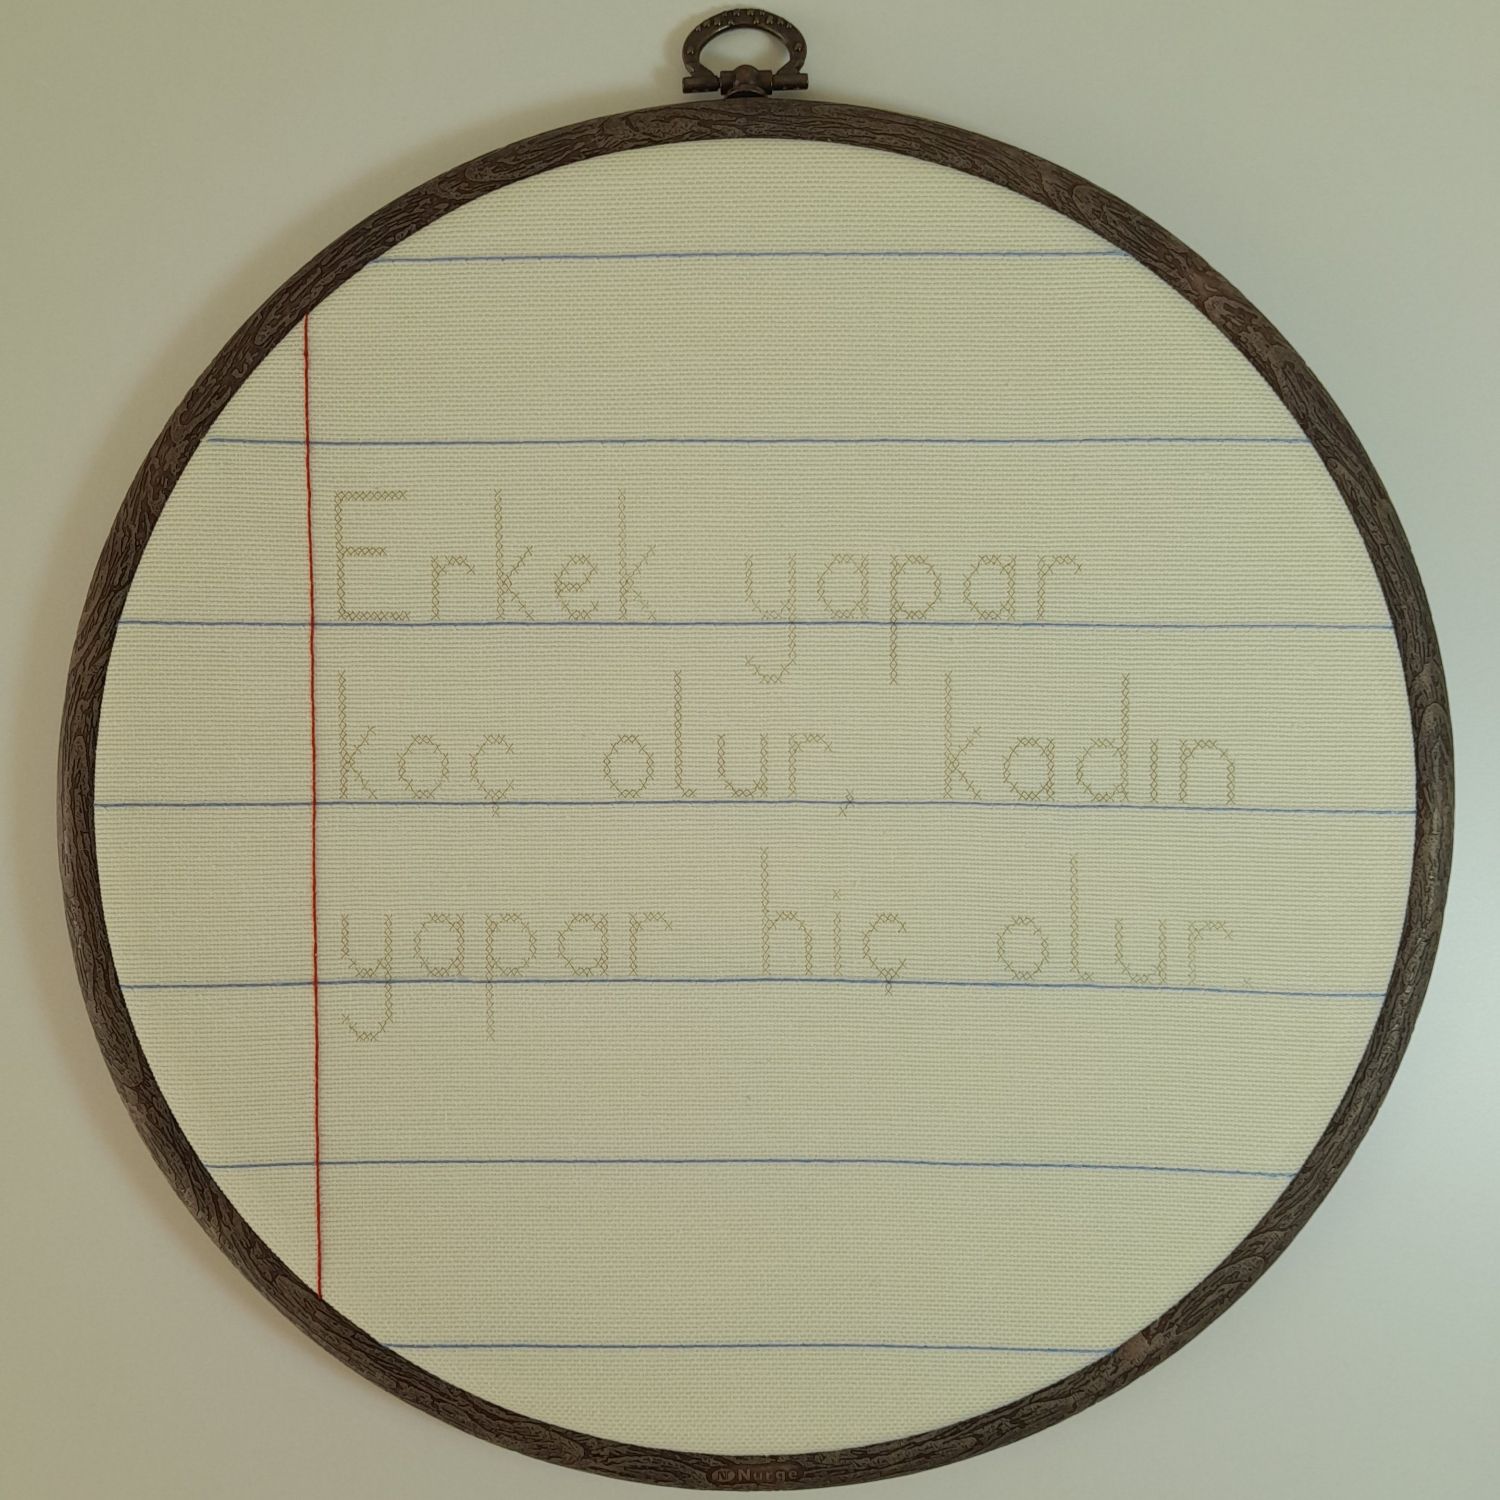 Erkek yapar
koç olur, kadın
yapar hiç olur.
Nurge